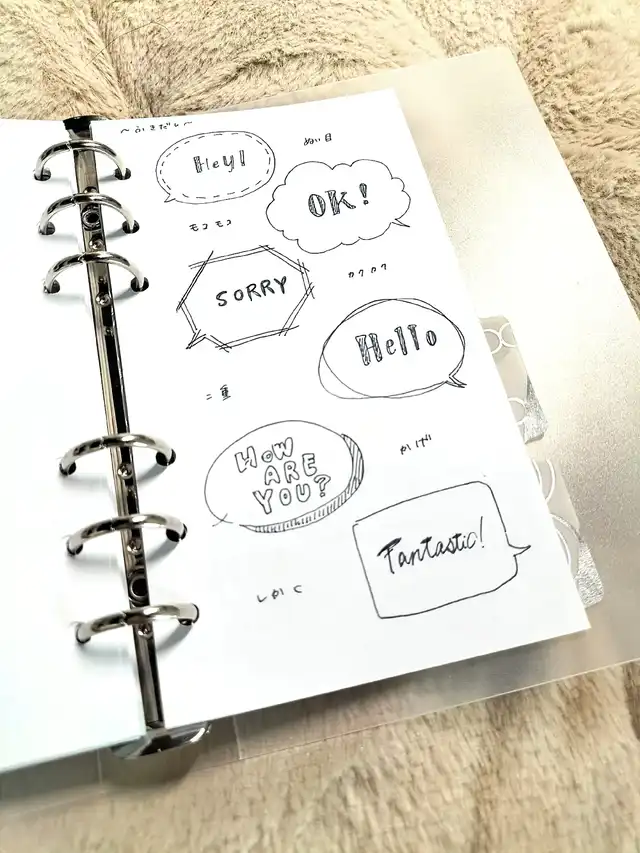 ～ふきだし～
Hey!
ぬい目
OK!
モコモコ
SORRY
カクカク
Hello
二重
HOW
ARE
YOU?
かげ
Fantastic!
しかく